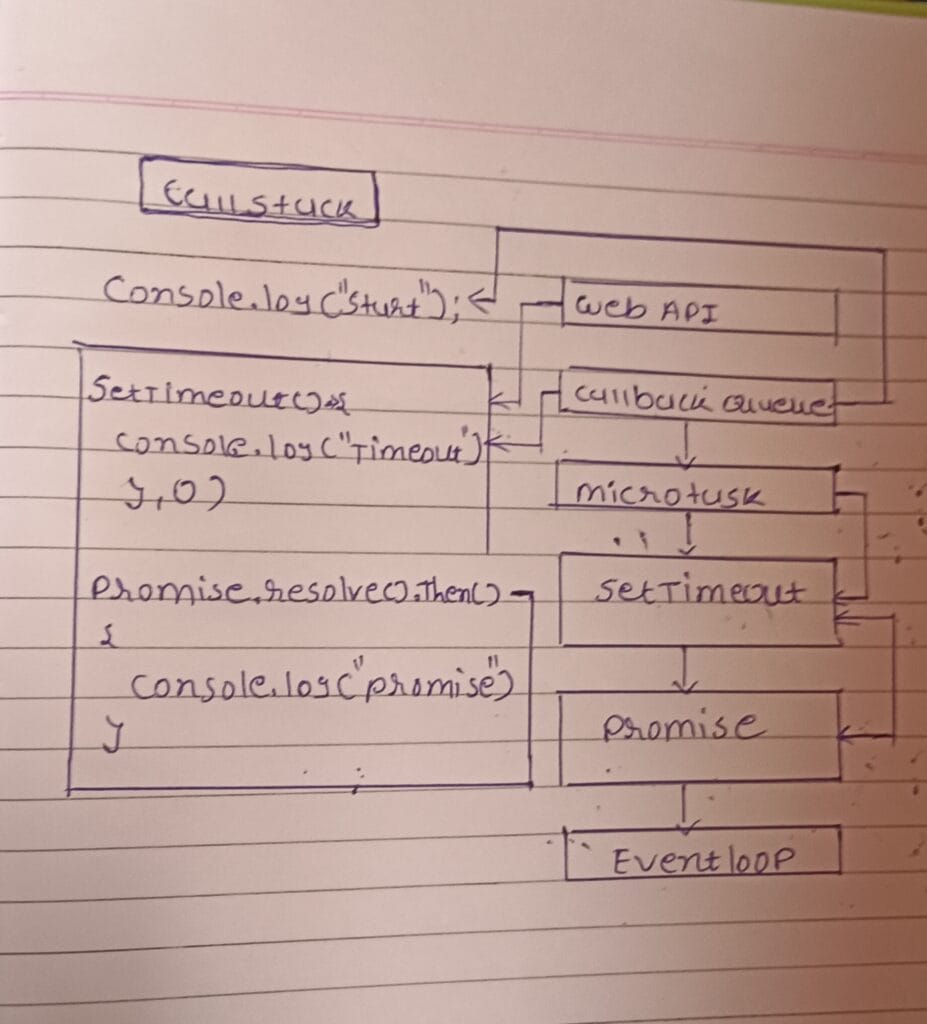 Callstack
Console.log("Start");
Web API
SetTimeout()=>{
Callback Queue
console.log("Timeout")
},0)
microtask
Promise.resolve().Then()
setTimeout
{
console.log("promise")
promise
}
Eventloop